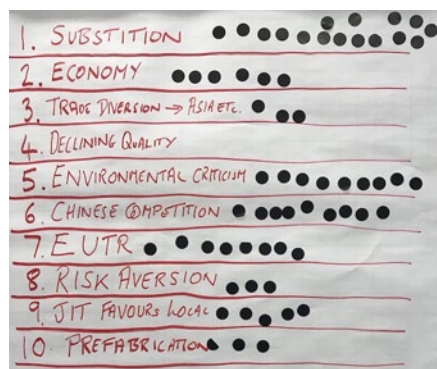 1. SUBSTITION
2. ECONOMY
3. TRADE DIVERSION → ASIA ETC.
4. DECLINING QUALITY
5. ENVIRONMENTAL CRITICISM
6. CHINESE COMPETITION
7. EUTR
8. RISK AVERSION
9. JIT FAVOURS LOCAL
10. PREFABRICATION